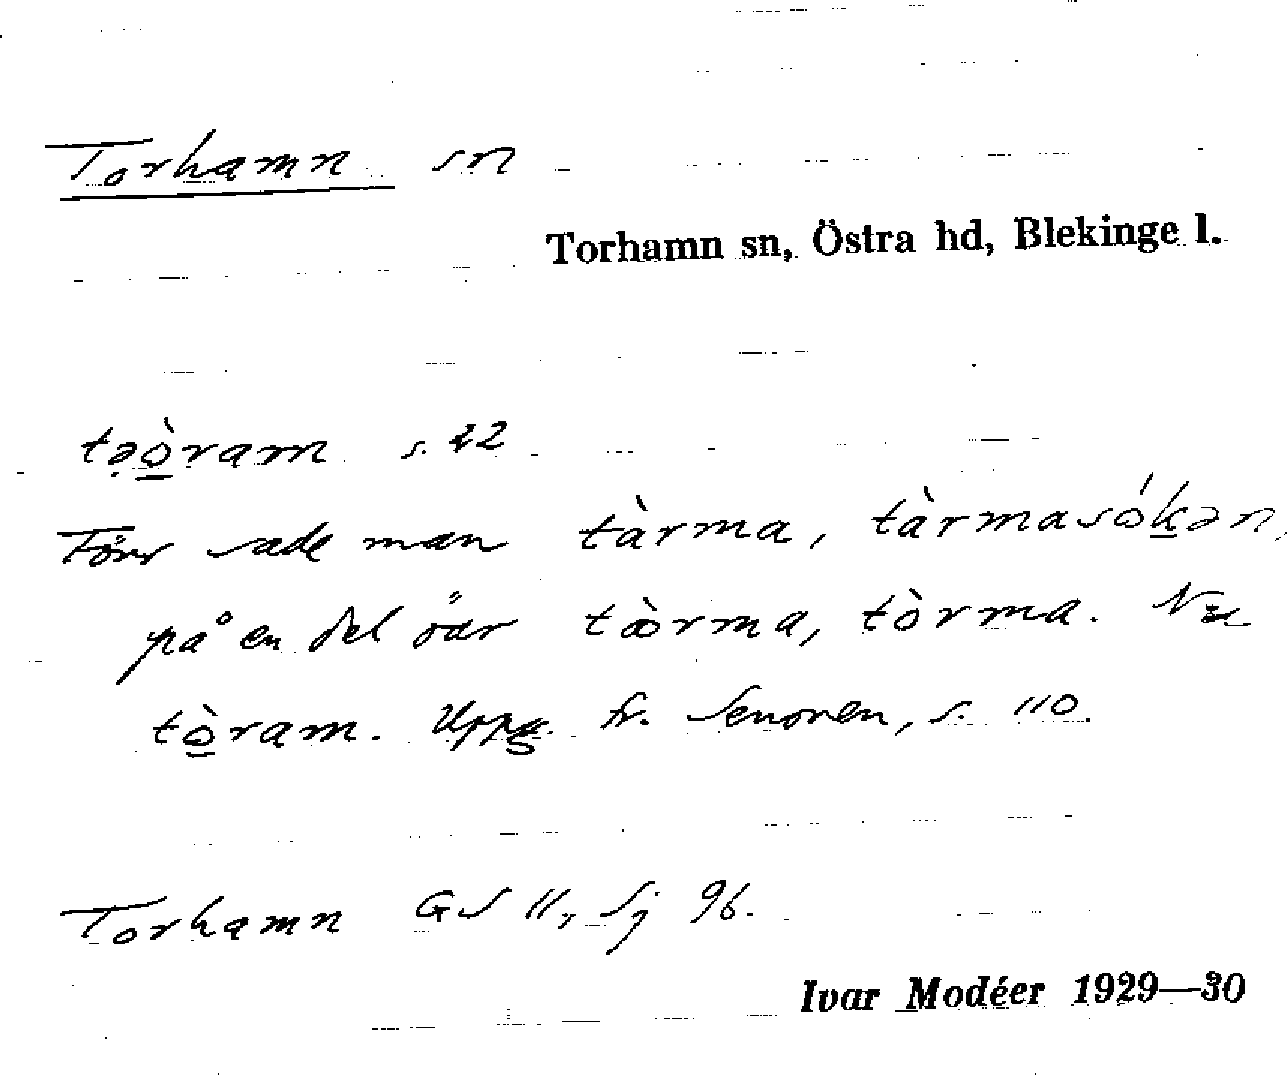 Torhamn sn
Torhamn sn, Östra hd, Blekinge l.
təò̲ram s. 22
Förr sade man tàrma, tàrmasók̲ən,
på en del öar tæ̀rma, tòrma. Nu
tò̲ram. Uppg. fr. Senoren, s. 110.
Torhamn GS 11, Sj 96.
Ivar Modéer 1929—30